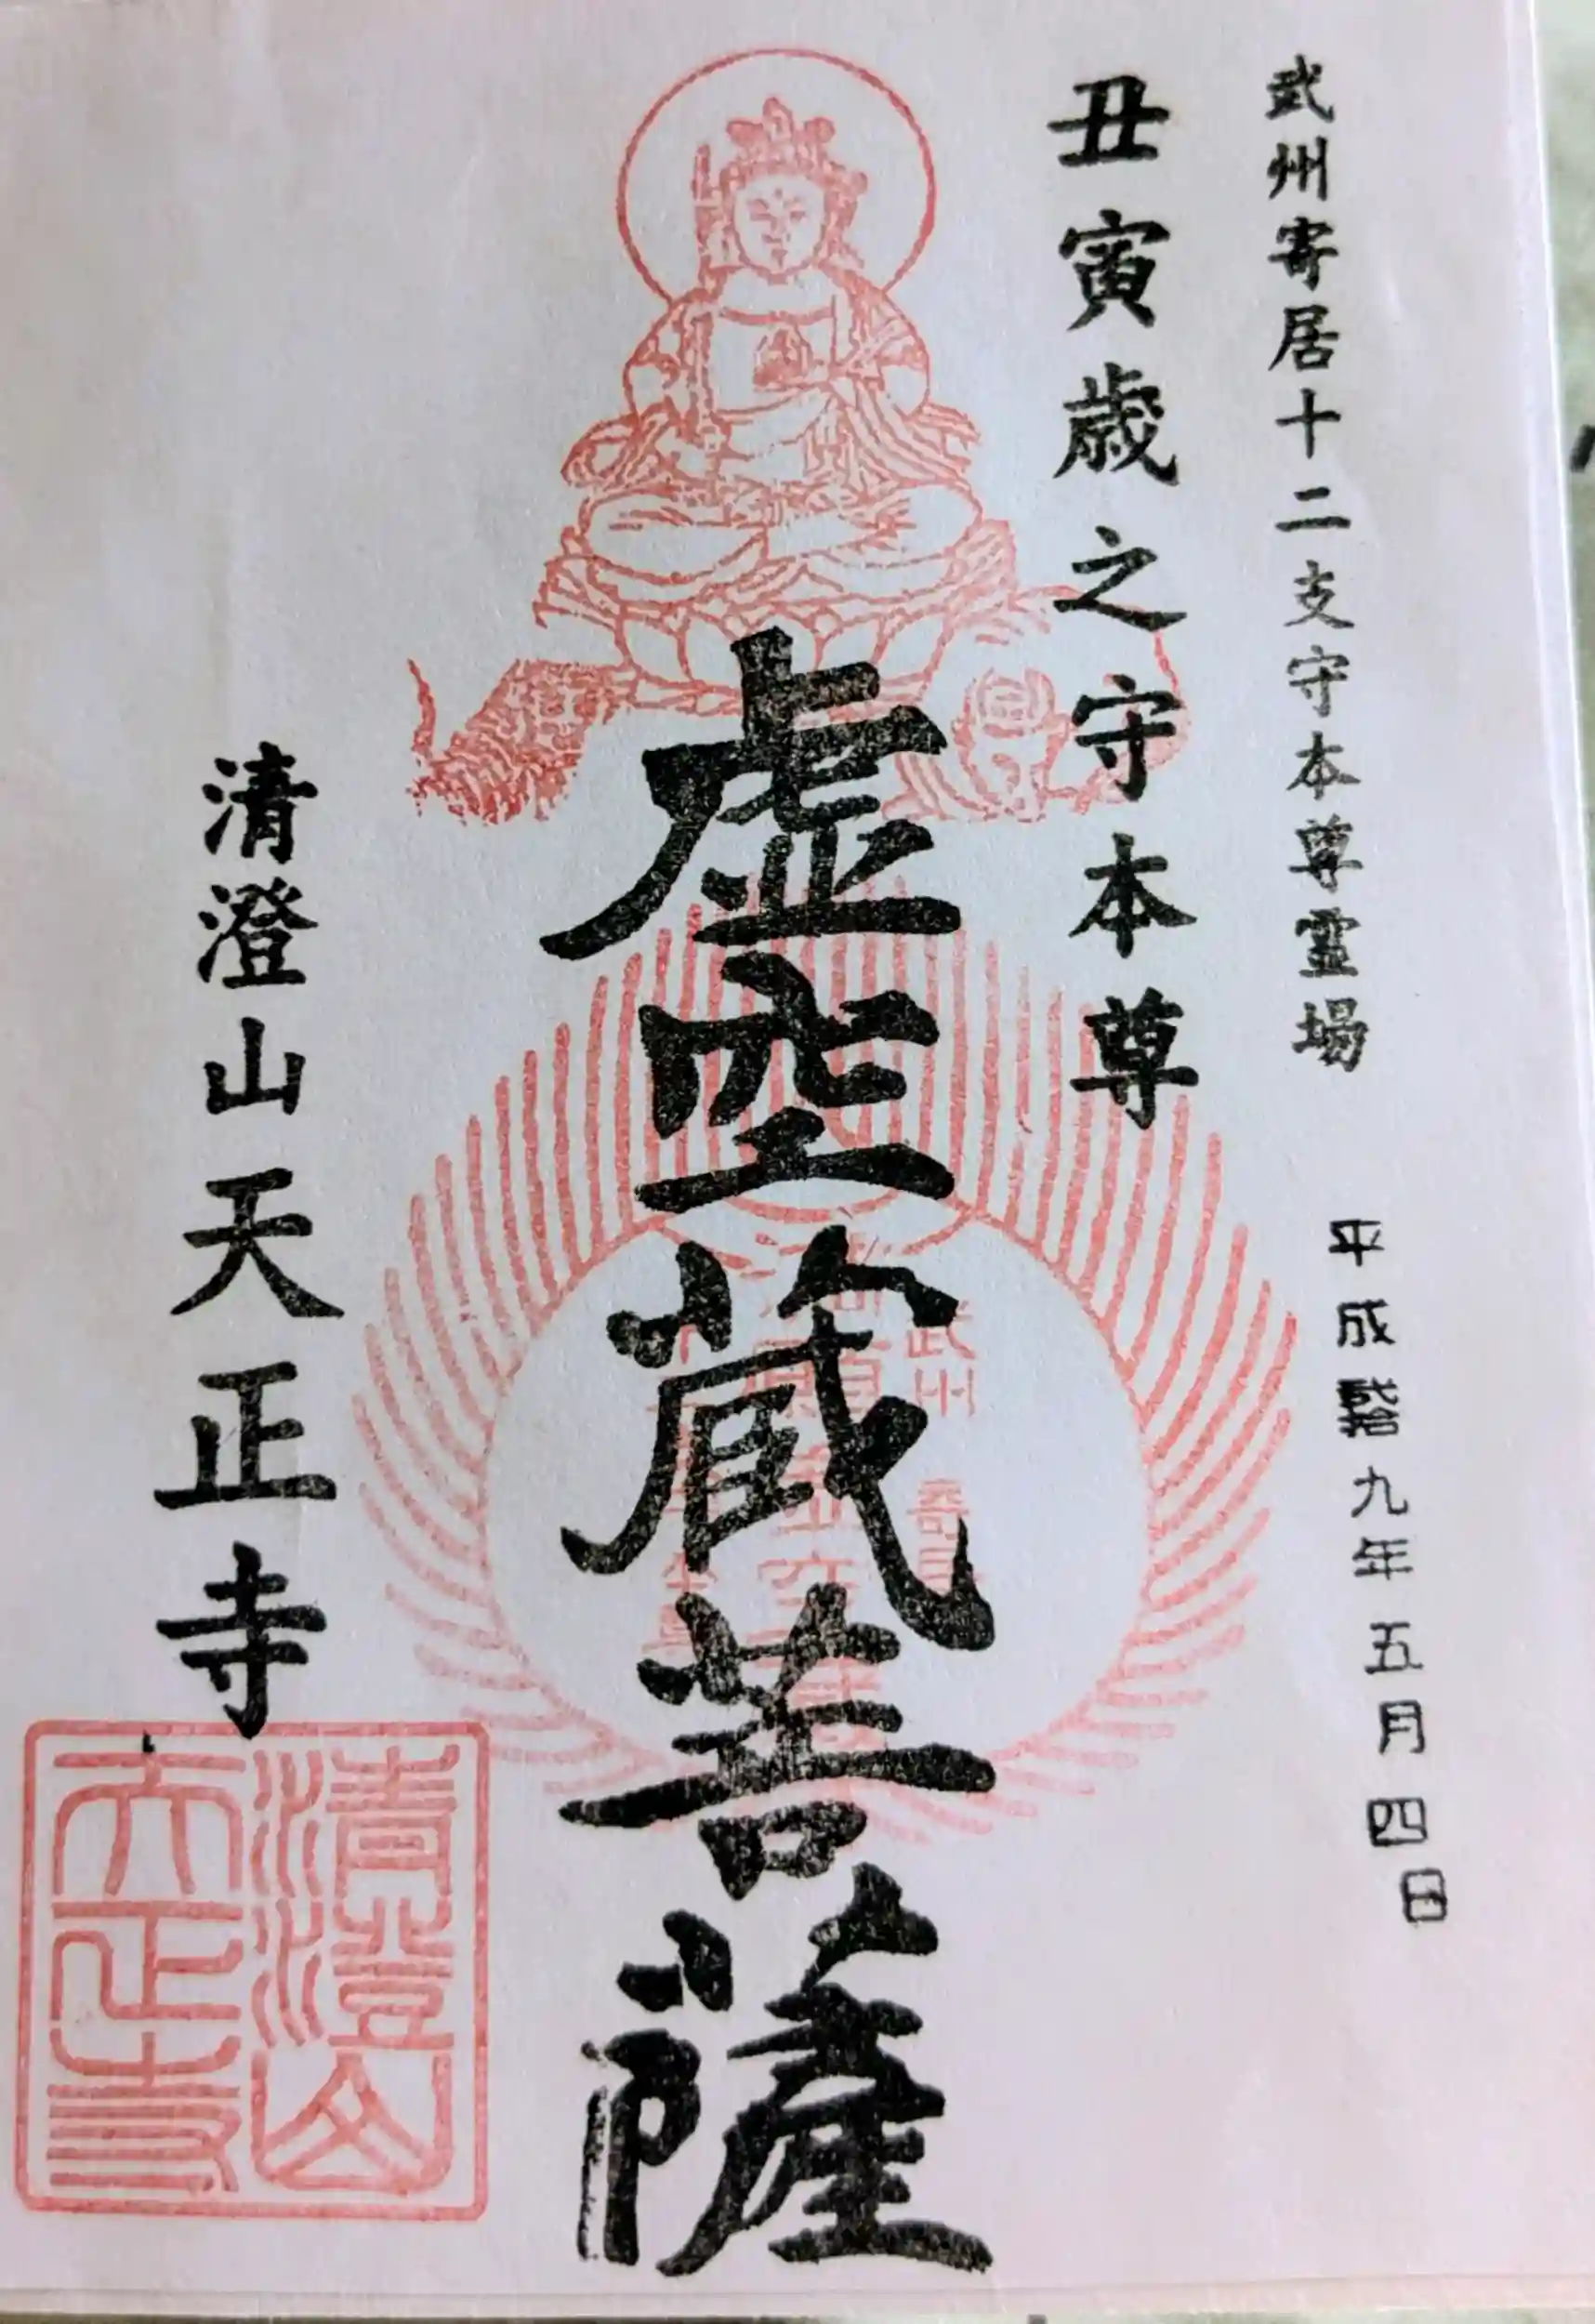 武州寄居十二支守本尊霊場 平成貮拾九年五月四日
丑寅歳之守本尊
虚空蔵菩薩
清澄山天正寺
武州 寄居
清澄山
天正寺